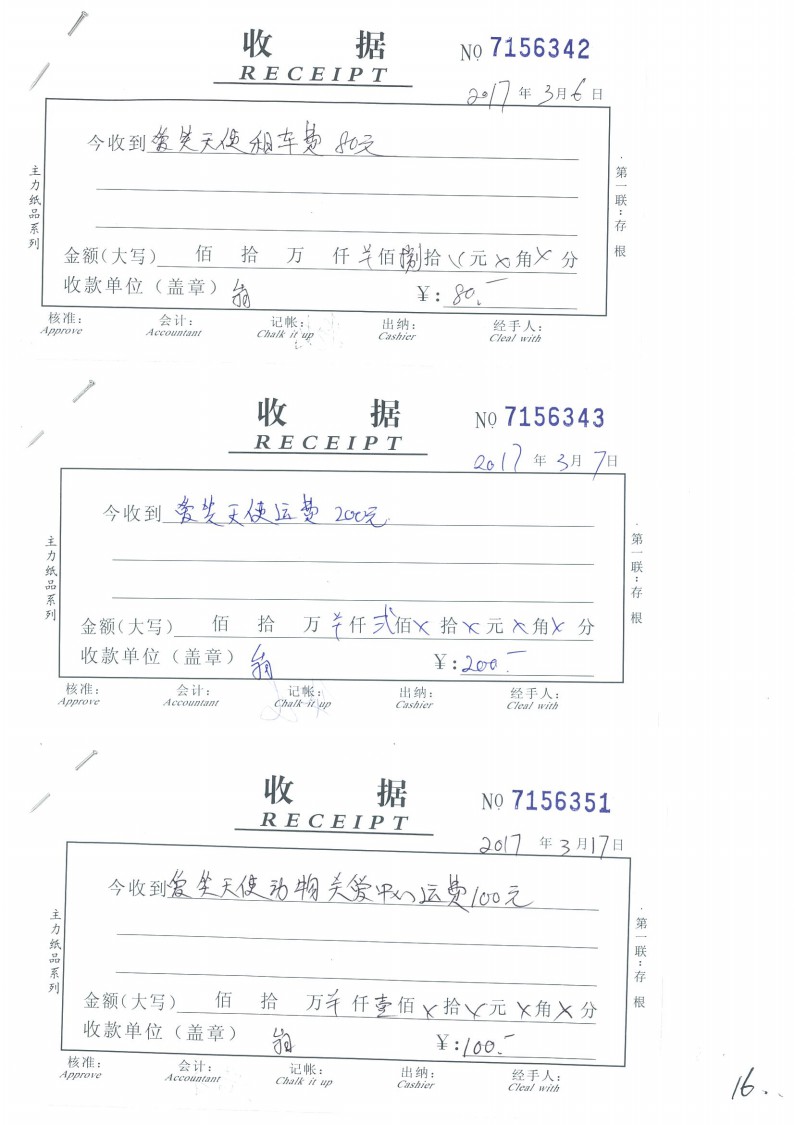 收 据
RECEIPT
NO 7156342
2017 年 3月6日
今收到 爱笑天使租车费 80元
金额(大写) 佰 拾 万 仟 佰捌拾 元 × 角 × 分
收款单位(盖章)
¥: 80.—
核准: 会计: 记帐: 出纳: 经手人:
Approve Accountant Chalk it up Cashier Cleal with
主力纸品系列
第一联:存根
收 据
RECEIPT
NO 7156343
2017 年 3月7日
今收到 爱笑天使运费 200元
金额(大写) 佰 拾 万 仟 贰佰 × 拾 × 元 × 角 × 分
收款单位(盖章)
¥: 200.—
核准: 会计: 记帐: 出纳: 经手人:
Approve Accountant Chalk it up Cashier Cleal with
主力纸品系列
第一联:存根
收 据
RECEIPT
NO 7156351
2017 年 3月17日
今收到爱笑天使动物关爱中心运费100元
金额(大写) 佰 拾 万 仟壹佰 × 拾 × 元 × 角 × 分
收款单位(盖章)
¥: 100.—
核准: 会计: 记帐: 出纳: 经手人:
Approve Accountant Chalk it up Cashier Cleal with
主力纸品系列
第一联:存根
16.